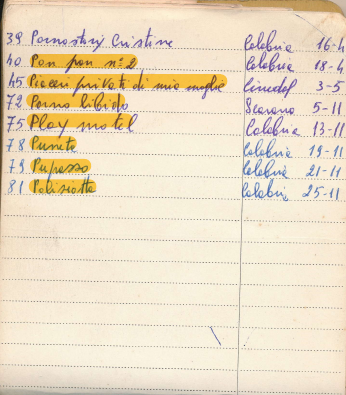 39 Pornostar Cristine Calabria 16-4
40 Pon pon n° 2 Calabria 18-4
45 Piaceri privati di mia moglie Cinedaf 3-5
72 Porno libido Scarano 5-11
75 Play motel Calabria 13-11
78 Calabria 19-11
79 Papasso Calabria 21-11
81 Poliziotta Calabria 25-11